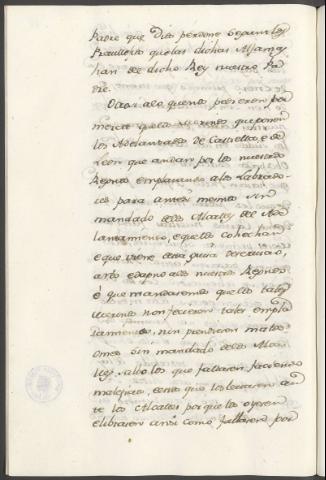 Padre que Dios perdone segun los
Previllegios que las dichas Mamo
han de dicho Rey nuestro Pa
dre.
O casi a lo que nos pedieron por
merced que los merinos que ponen
los Adelantados de Castiella, e de
Leon que andan por los nuestros
Regnos emplazando a los Labrado-
res para ante sin
mandado de los Alcalles del Ade
lantamiento, e que los cohechan
e que viene en esta guisa
a nuestros Regnos
è que mandasemos que los tales
merinos non ficiesen tales empla
zamientos, nin prendiesen mas los
omes sin mandado de los Alca
lles, salvo los que fallasen faciendo
maleficio, e estos que los levasen an
te los Alcalles porque los oyesen
e librasen ansi como fallasen por